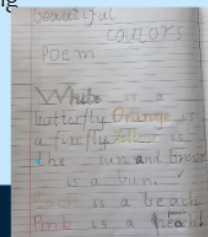 ng
beautiful
colours
Poem
White is a
butterfly Orange is
a firefly Yellow is
the sun and brown
is a bun.
Each is a beach
Pink is a peach!
peach